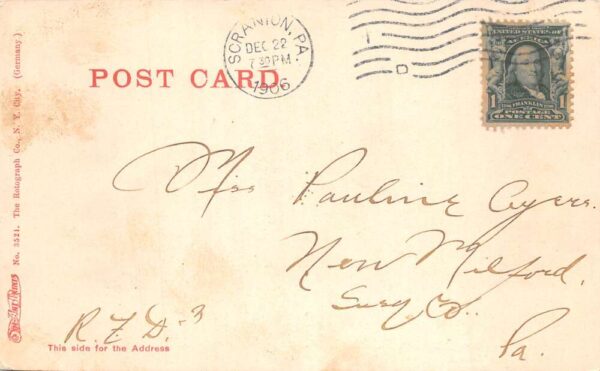 SCRANTON, PA.
DEC 22
7 30 PM
1906
UNITED STATES OF AMERICA
1 FRANKLIN 1
POSTAGE
ONE CENT
POST CARD
Miss Pauline Ayers.
New Milford,
Susq. Co.
Pa.
R. F. D. -3
This side for the Address
No. 3521. The Rotograph Co., N. Y. City. (Germany.)